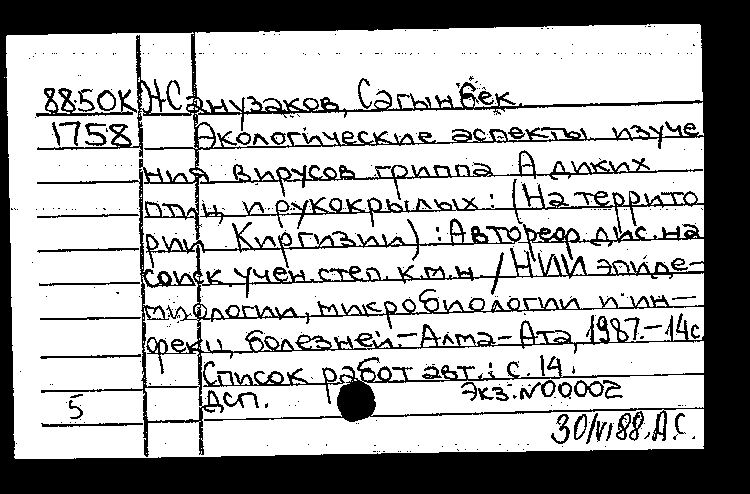 8850К Жанузаков, Сагынбек.
1758 Экологические аспекты изуче
ния вирусов гриппа А диких
птиц и рукокрылых: (На террито
рии Киргизии): Автореф. дис. на
соиск. учен. степ. к.м.н / НИИ эпиде-
миологии, микробиологии и ин-
фекц. болезней.-Алма-Ата, 1987.-14с.
Список работ авт.: с. 14.
5 ДСП. Экз. N00002
30/VI 88, А.С.